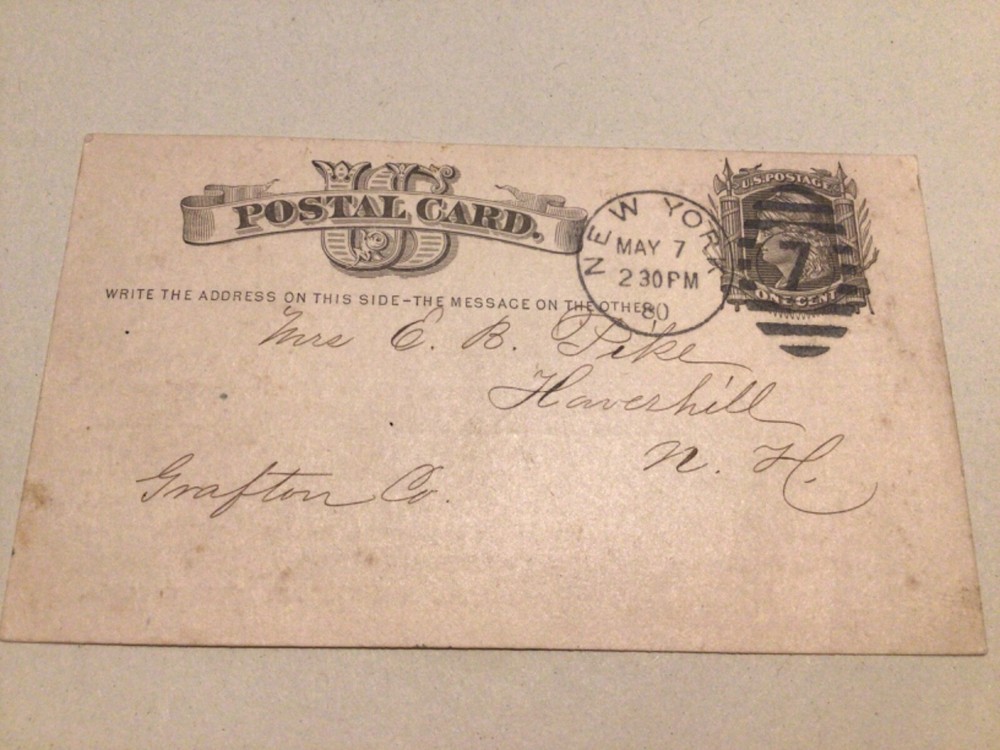 US
POSTAL CARD.
WRITE THE ADDRESS ON THIS SIDE-THE MESSAGE ON THE OTHER
NEW YORK
MAY 7
2 30 PM
80
U.S. POSTAGE
7
ONE CENT
Mrs E. B. Pike
Haverhill
N. H.
Grafton Co.